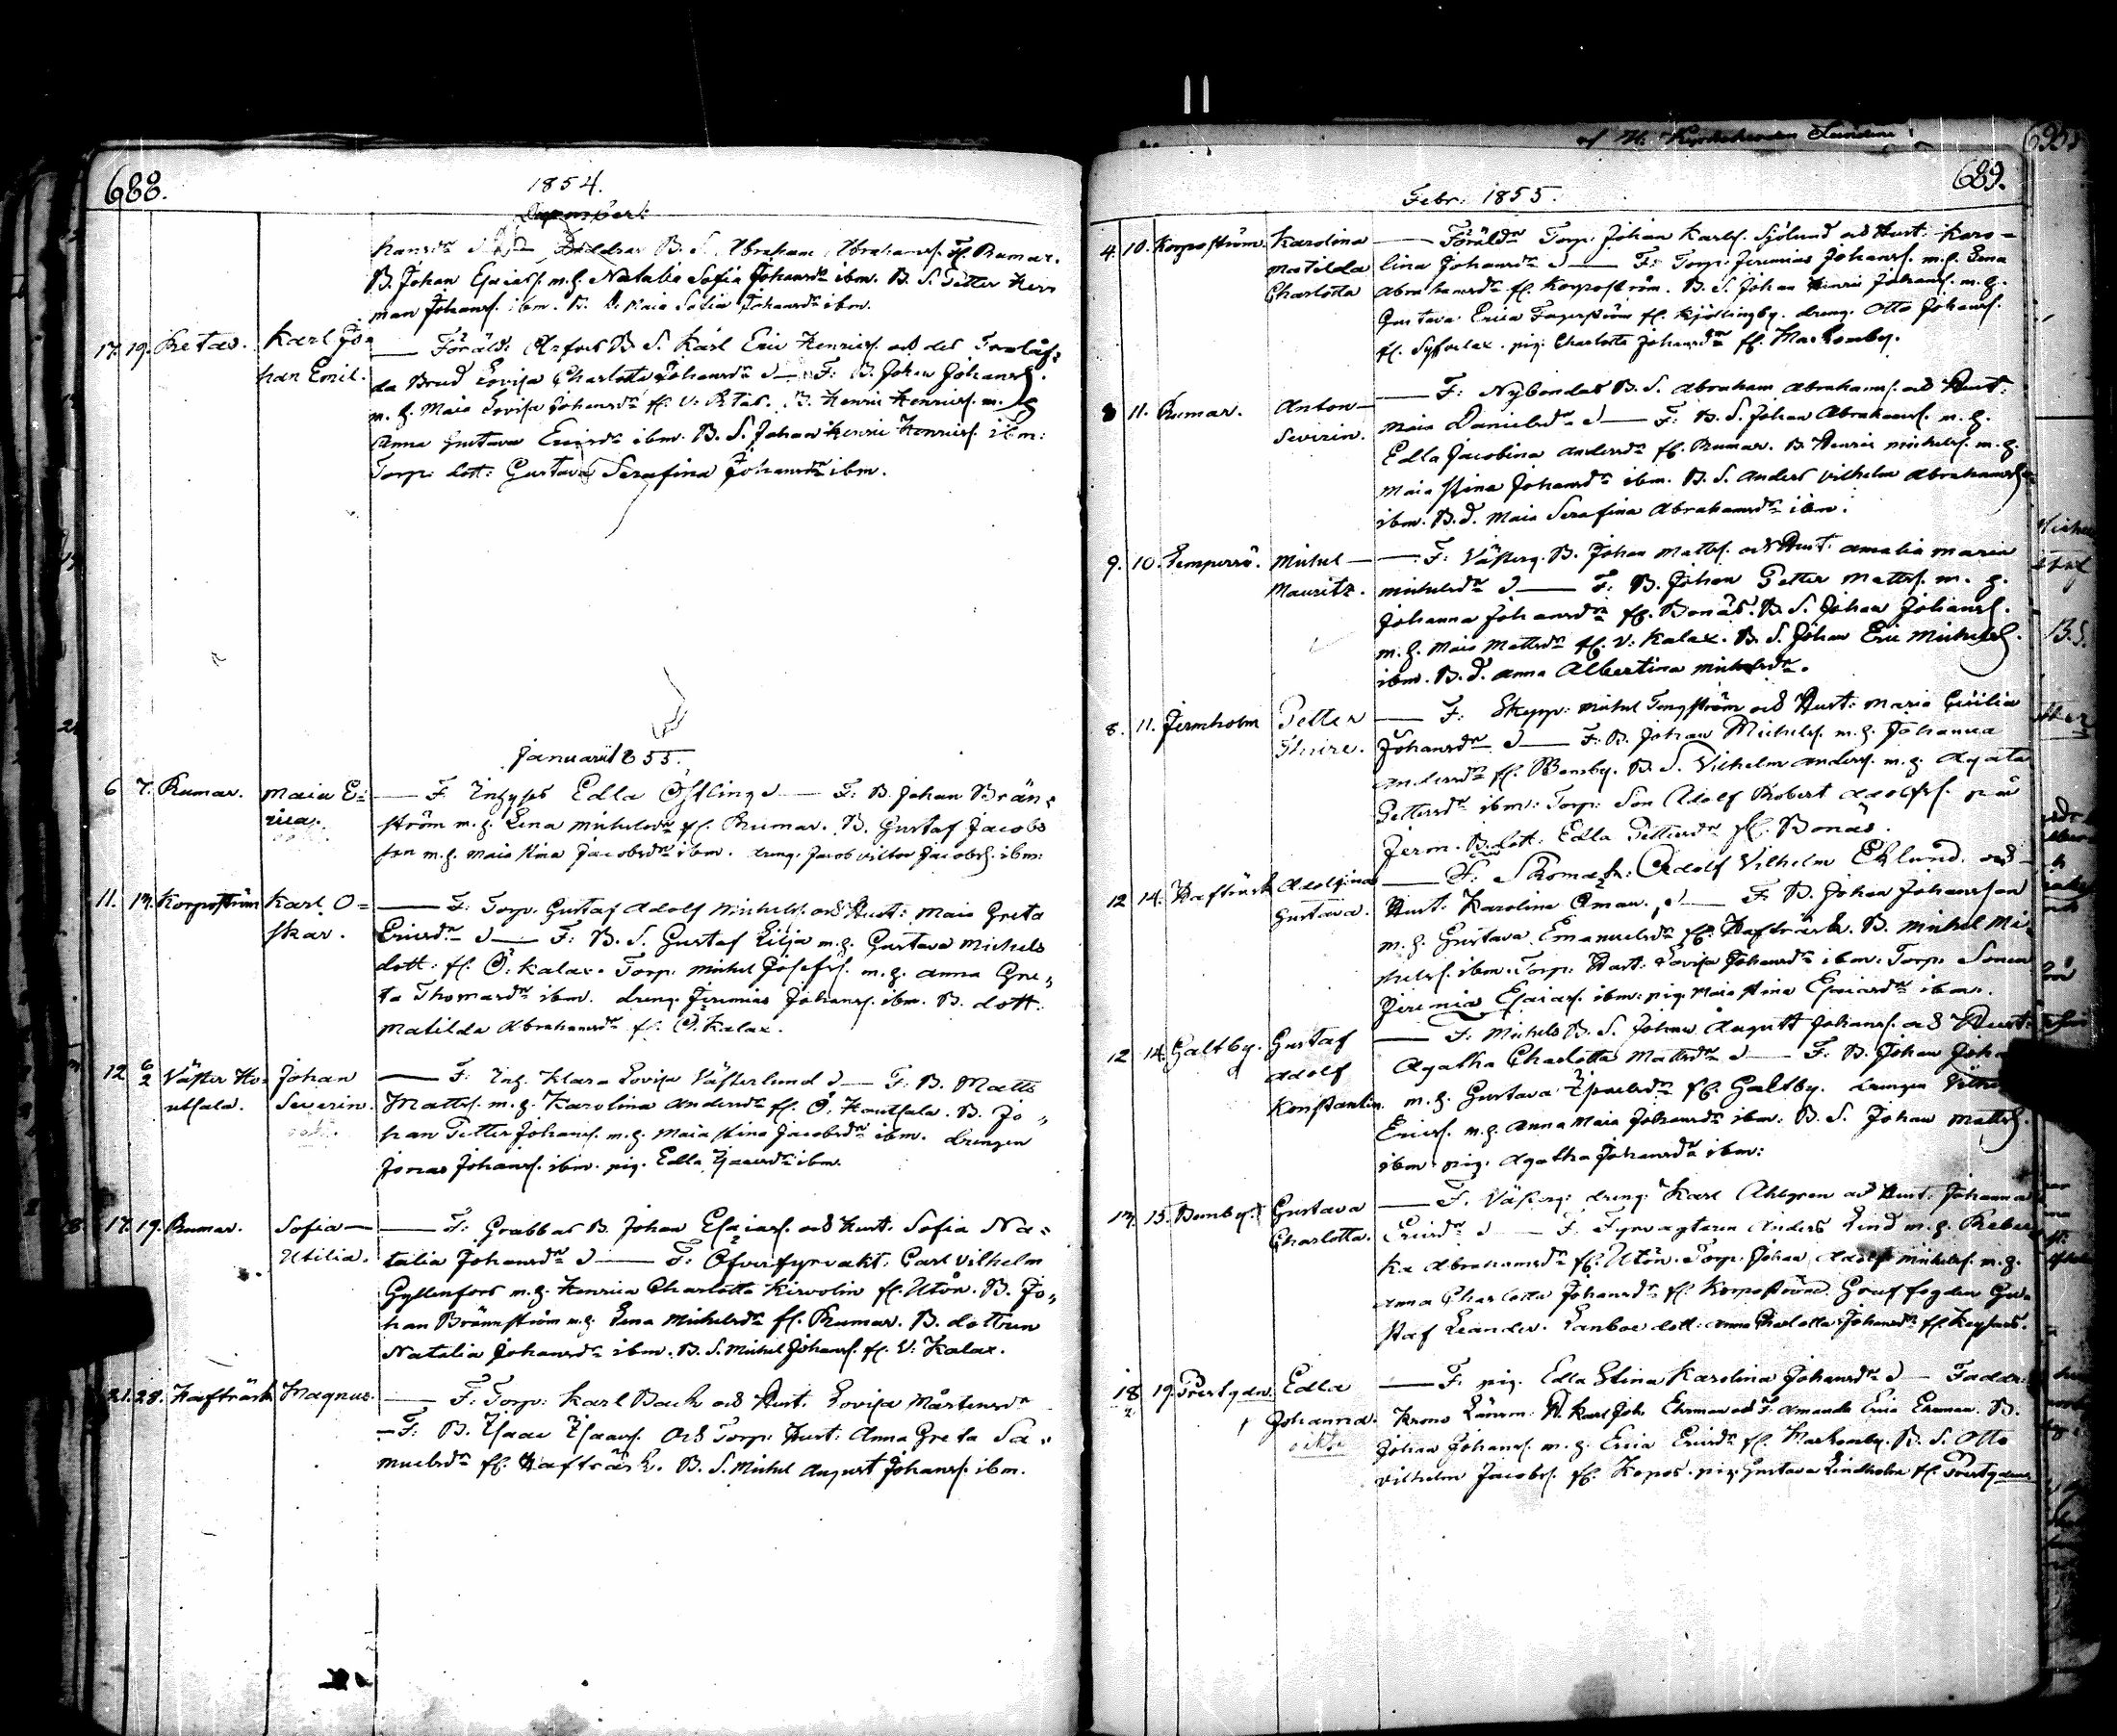 688.
1854.
December
hansdr d — Faddrar B. S. Abraham Abrahamss. fr. Rumar.
B. Johan Esaiass. m. h. Natalia Sofia Johansdr ibm. B. S. Petter Her=
man Johanss. ibm. B. d. Maia Sofia Johansdr ibm.
17. 19. Retas. Karl Jo= — Föräld: B. S. Karl Eric Henricss. och des Trolåf=
han Emil. da Brud Lovisa Charlotta Johansdr d — F: B. Johan Johanss.
m. h. Maia Lovisa Johansdr fr. V. Retas. B. Henric Henricss. m. h.
Anna Gustava Ericsdr ibm. B. S. Johan Henric Henricss. ibm:
Torp: dott: Gustava Serafina Johansdr ibm.
Januari 1855.
6 7. Rumar. Maia E= — F. Inhyses Edla Östling d — F: B. Johan Brän=
rica. ström m. h. Lena Michelsdr fr. Rumar. B. Gustaf Jacobs
son m. h. Maia Stina Jacobsdr ibm. dreng. Jacob Victor Jacobss. ibm:
11. 14. Korpoström Karl O= — F: Torp. Gustaf Adolf Michelss. och Hust: Maia Greta
skar. Ericsdr d — F: B. S. Gustaf Lilja m. h. Gustava Michels
dott: fr. Ö. Kalax. Torp. Michel Josefss. m. h. Anna Gre=
ta Thomasdr ibm. dreng. Jeremias Johanss. ibm. B. dott.
Matilda Abrahamsdr fr. Ö. Kalax.
12 6/2 Väster Ho= Johan — F: Inh. Klara Lovisa Västerlund d — F: B. Matts
utsala. Severin. Mattss. m. h. Karolina Andersdr fr. Ö. Houtsala. B. Jo=
han Petter Johanss. m. h. Maia Stina Jacobsdr ibm. drengen
Jonas Johanss. ibm. pig. Edla Isacsdr ibm.
17. 19. Rumar. Sofia — — F: Grabbas B. Johan Esaiass. och Hust. Sofia Na=
Utilia. talia Johansdr d — F: Öfverfyrvakt. Carl Vilhelm
Gyllenfors m. h. Henrica Charlotta Kirvolin fr. Utön. B. Jo=
han Brännström m. h. Lena Michelsdr fr. Rumar. B. dottren
Natalia Johansdr ibm. B. S. Michel Johanss. fr. V. Kalax.
21. 28. Hafträsk Magnus. — F: Torp: Karl Back och Hust. Lovisa Mårtensdr
— F: B. Isaac Isaacss. och Torp: Hust: Anna Greta Sa=
muelsdr fr. Hafträsk. B. S. Michel August Johanss. ibm.
689.
Febr: 1855.
4. 10. Korpoström. Karolina — Föräldr Torp. Johan Karlss. Sjölund och Hust: Karo=
Matilda lina Johansdr d — F: Torp: Jeremias Johanss. m. h. Lena
Charlotta Abrahamsdr fr. Korpoström. B. S. Johan Henric Johanss. m. h.
Gustava Erica Fagerström fr. Kjörlingby. dreng. Otto Johanss.
fr. Syfverlax. pig: Charlotta Johansdr fr. Markomby.
8 11. Rumar. Anton — — F: Nybondas B. S. Abraham Abrahamss. och Hust:
Sevirin. Maia Danielsdr d — F: B. S. Johan Abrahamss. m. h.
Edla Jacobina Andersdr fr. Rumar. B. Henric Michelss. m. h.
Maia Stina Johansdr ibm. B. S. Anders Vilhelm Abrahamss.
ibm. B. d. Maia Serafina Abrahamsdr ibm.
9. 10. Lempersö. Michel — — F: Västerg. B. Johan Mattss. och Hust: Amalia Maria
Mauritz. Michelsdr d — F: B. Johan Petter Mattss. m. h.
Johanna Johansdr fr. Bonäs. B. S. Johan Johanss.
m. h. Maia Mattsdr fr. V: Kalax. B. S. Johan Eric Michelss.
ibm. B. d. Anna Albertina Michelsdr.
8. 11. Jermholm Petter — F: Skepp: Michel Tengström och Hust: Maria Cicilia
Thure. Johansdr d — F: B. Johan Michelss. m. h. Johanna
Andersdr fr. Bensby. B. S. Vilhelm Anderss. m. h. Agata
Pettersdr ibm: Torp: Son Adolf Robert Adolfss. på
Jerm. B. dott: Edla Pettersdr fr. Bonäs.
12 14. Hafträsk Adolfina — F: Skomak: Adolf Vilhelm Eklund och
Gustava. Hust. Karolina Öman d — F: B. Johan Johansson
m. h. Gustava Emanuelsdr fr. Hafträsk. B. Michel Mi=
chelss. ibm. Torp: Hust: Lovisa Johansdr ibm. Torp: Sonen
Jeremia Esaiass. ibm: pig. Maia Stina Esaiasdr ibm.
12 14. Galtby. Gustaf — F: Michels B. S. Johan August Johanss. och Hust:
Adolf Agatha Charlotta Mattsdr d — F: B. Johan Joh
Konstantin. m. h. Gustava Israelsdr fr. Galtby. drengen
Ericss. m. h. Anna Maia Johansdr ibm: B. S. Johan Mattss.
ibm. pig. Agatha Johansdr ibm:
14. 15. Bensby. Gustava — F. Västerg: dreng: Karl Ahlgren och Hust: Johanna
Charlotta. Ericsdr d — F. Fyrvagtaren Anders Lind m. h. Rebec
ka Abrahamsdr fr. Utön. Torp. Johan Adolf Michelss. m. h.
Anna Charlotta Johansdr fr. Korpoström. Gruffogden Gu=
staf Leander. Lanboe dott: Anna Charlotta Johansdr fr.
18 19. Prestgdn. Edla — F. pig. Edla Stina Karolina Johansdr d — Faddr:
Johanna. Krono Länsm: Karl Joh. Ehrman och F: Amanda Erica Ehrman. B.
oäkta Johan Johanss. m. h. Erica Ericsdr fr. Markomby. B. S. Otto
Vilhelm Jacobss. fr. Kopos. pig. Gustava Lindholm fr. Prestgden